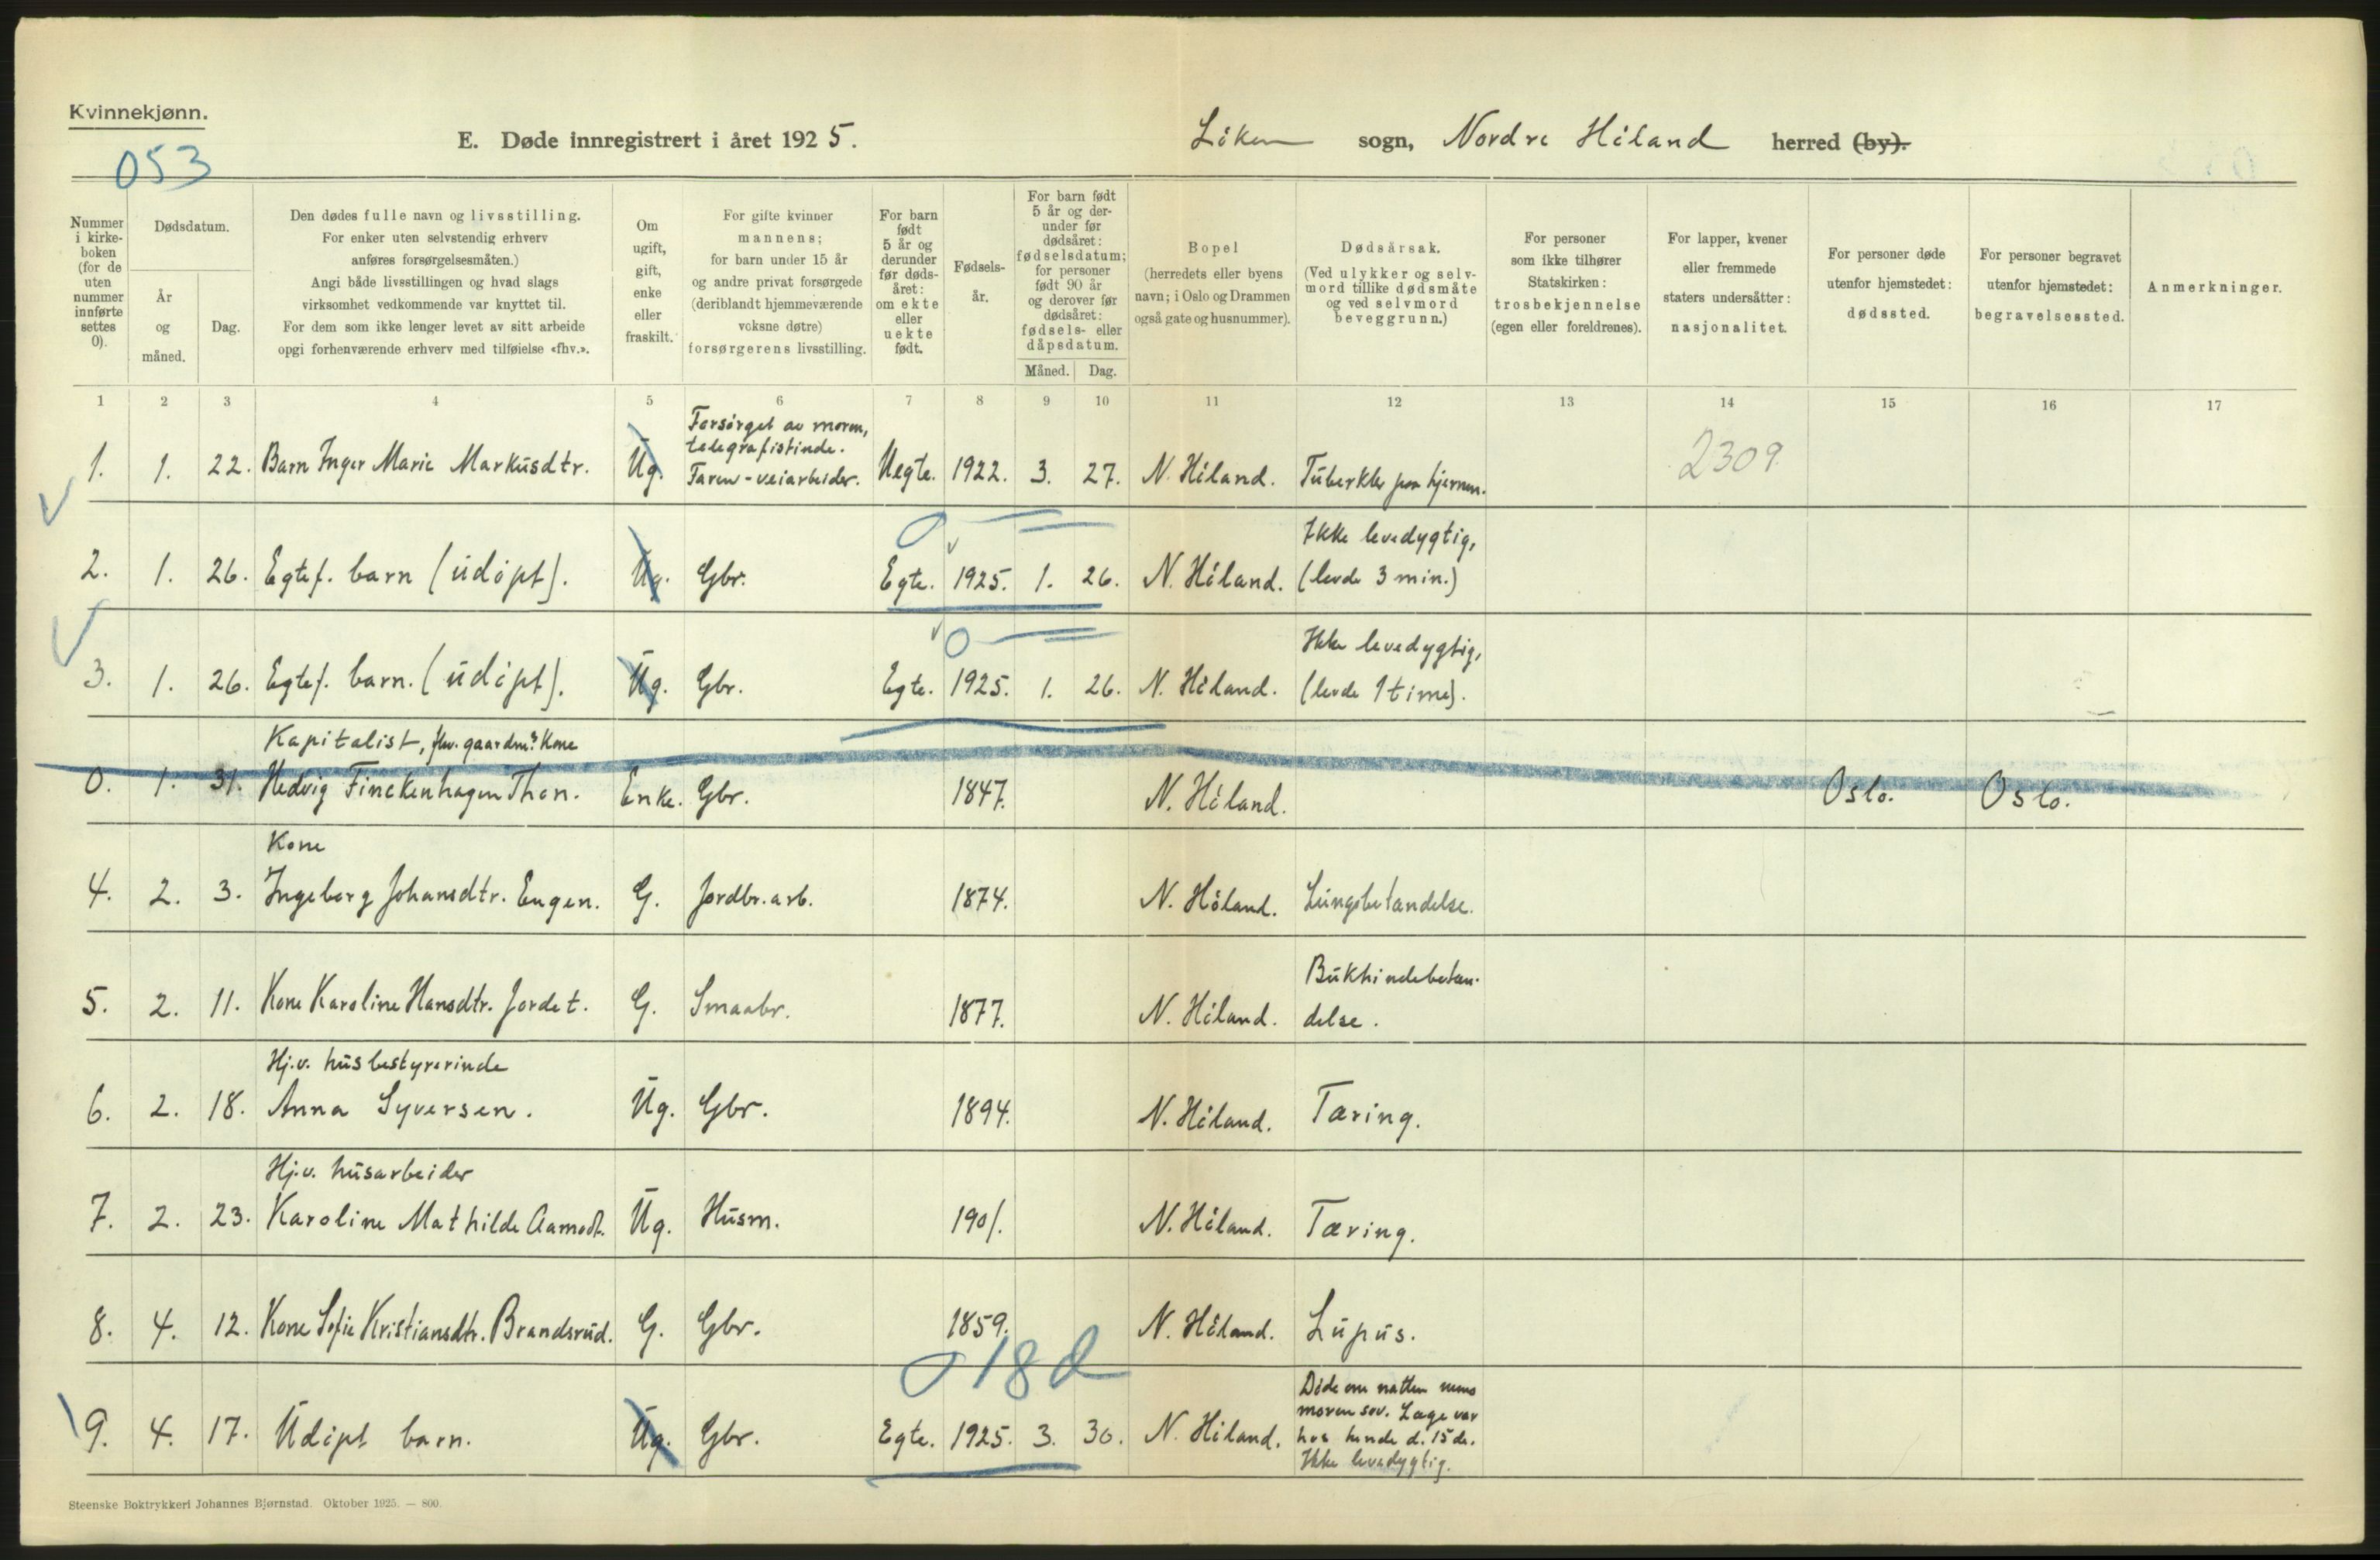 Kvinnekjønn.
053
E. Døde innregistrert i året 1925.
Løken sogn, Nordre Høland herred (by).
Nummer i kirke-boken (for de uten nummer innførte settes 0).
Dødsdatum.
År og måned.
Dag.
Den dødes fulle navn og livsstilling.
For enker uten selvstendig erhverv
anføres forsørgelsesmåten.)
Angi både livsstillingen og hvad slags
virksomhet vedkommende var knyttet til.
For dem som ikke lenger levet av sitt arbeide
opgi forhenværende erhverv med tilføielse «fhv.».
Om ugift, gift, enke eller fraskilt.
For gifte kvinner
mannens;
for barn under 15 år
og andre privat forsørgede
(deriblandt hjemmeværende
voksne døtre)
forsørgerens livsstilling.
For barn født 5 år og derunder før døds-året: om ekte eller uekte født.
Fødsels-år.
For barn født 5 år og der-under før dødsåret: fødselsdatum; for personer født 90 år og derover før dødsåret: fødsels- eller dåpsdatum.
Måned. Dag.
Bopel
(herredets eller byens
navn; i Oslo og Drammen
også gate og husnummer).
Dødsårsak.
(Ved ulykker og selv-
mord tillike dødsmåte
og ved selvmord
beveggrunn.)
For personer
som ikke tilhører
Statskirken:
trosbekjennelse
(egen eller foreldrenes).
For lapper, kvener
eller fremmede
staters undersåtter:
nasjonalitet.
For personer døde
utenfor hjemstedet:
dødssted.
For personer begravet
utenfor hjemstedet:
begravelsessted.
Anmerkninger.
1 2 3 4 5 6 7 8 9 10 11 12 13 14 15 16 17
Forsørget av moren,
telegrafistinde.
1. 1. 22. Barn Inger Marie Markusdtr. Ug. Faren - veiarbeider. Uegte. 1922. 3. 27. N. Høland. Tuberkler paa hjernen. 2309
Ikke levedygtig,
2. 1. 26. Egtef. barn (udøpt). Ug. Gbr. Egte. 1925. 1. 26. N. Høland. (levde 3 min.)
Ikke levedygtig,
3. 1. 26. Egtef. barn. (udøpt). Ug. Gbr. Egte. 1925. 1. 26. N. Høland. (levde 1 time).
Kapitalist, fhv. gaardm? Kone
0. 1. 31. Hedvig Finckenhagen Thon. Enke. Gbr. 1847. N. Høland. Oslo. Oslo.
Kone
4. 2. 3. Ingeborg Johansdtr. Engen. G. Jordbr. arb. 1874. N. Høland. Lungebetændelse.
Bukhindebetæn-
5. 2. 11. Kone Karoline Hansdtr. Jordet. G. Smaabr. 1877. N. Høland. delse.
Hj.v. husbestyrerinde
6. 2. 18. Anna Syversen. Ug. Gbr. 1894. N. Høland. Tæring.
Hj.v. husarbeider
7. 2. 23. Karoline Mathilde Aamodt. Ug. Husm. 1901. N. Høland. Tæring.
8. 4. 12. Kone Sofie Kristiansdtr. Brandsrud. G. Gbr. 1859. N. Høland. Lupus.
0 18 d
Døde om natten mens
moren sov. Læge var
9. 4. 17. Udøpt barn. Ug. Gbr. Egte. 1925. 3. 30. N. Høland. hos hende d. 15de.
Ikke levedygtig.
Steenske Boktrykkeri Johannes Bjørnstad. Oktober 1925. — 800.